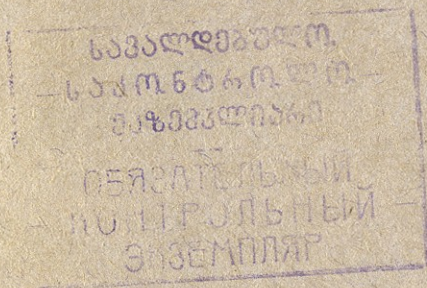 სავალდებულო
საკონტროლო
ეგზემპლიარი
ОБЯЗАТЕЛЬНЫЙ
КОНТРОЛЬНЫЙ
ЭКЗЕМПЛЯР